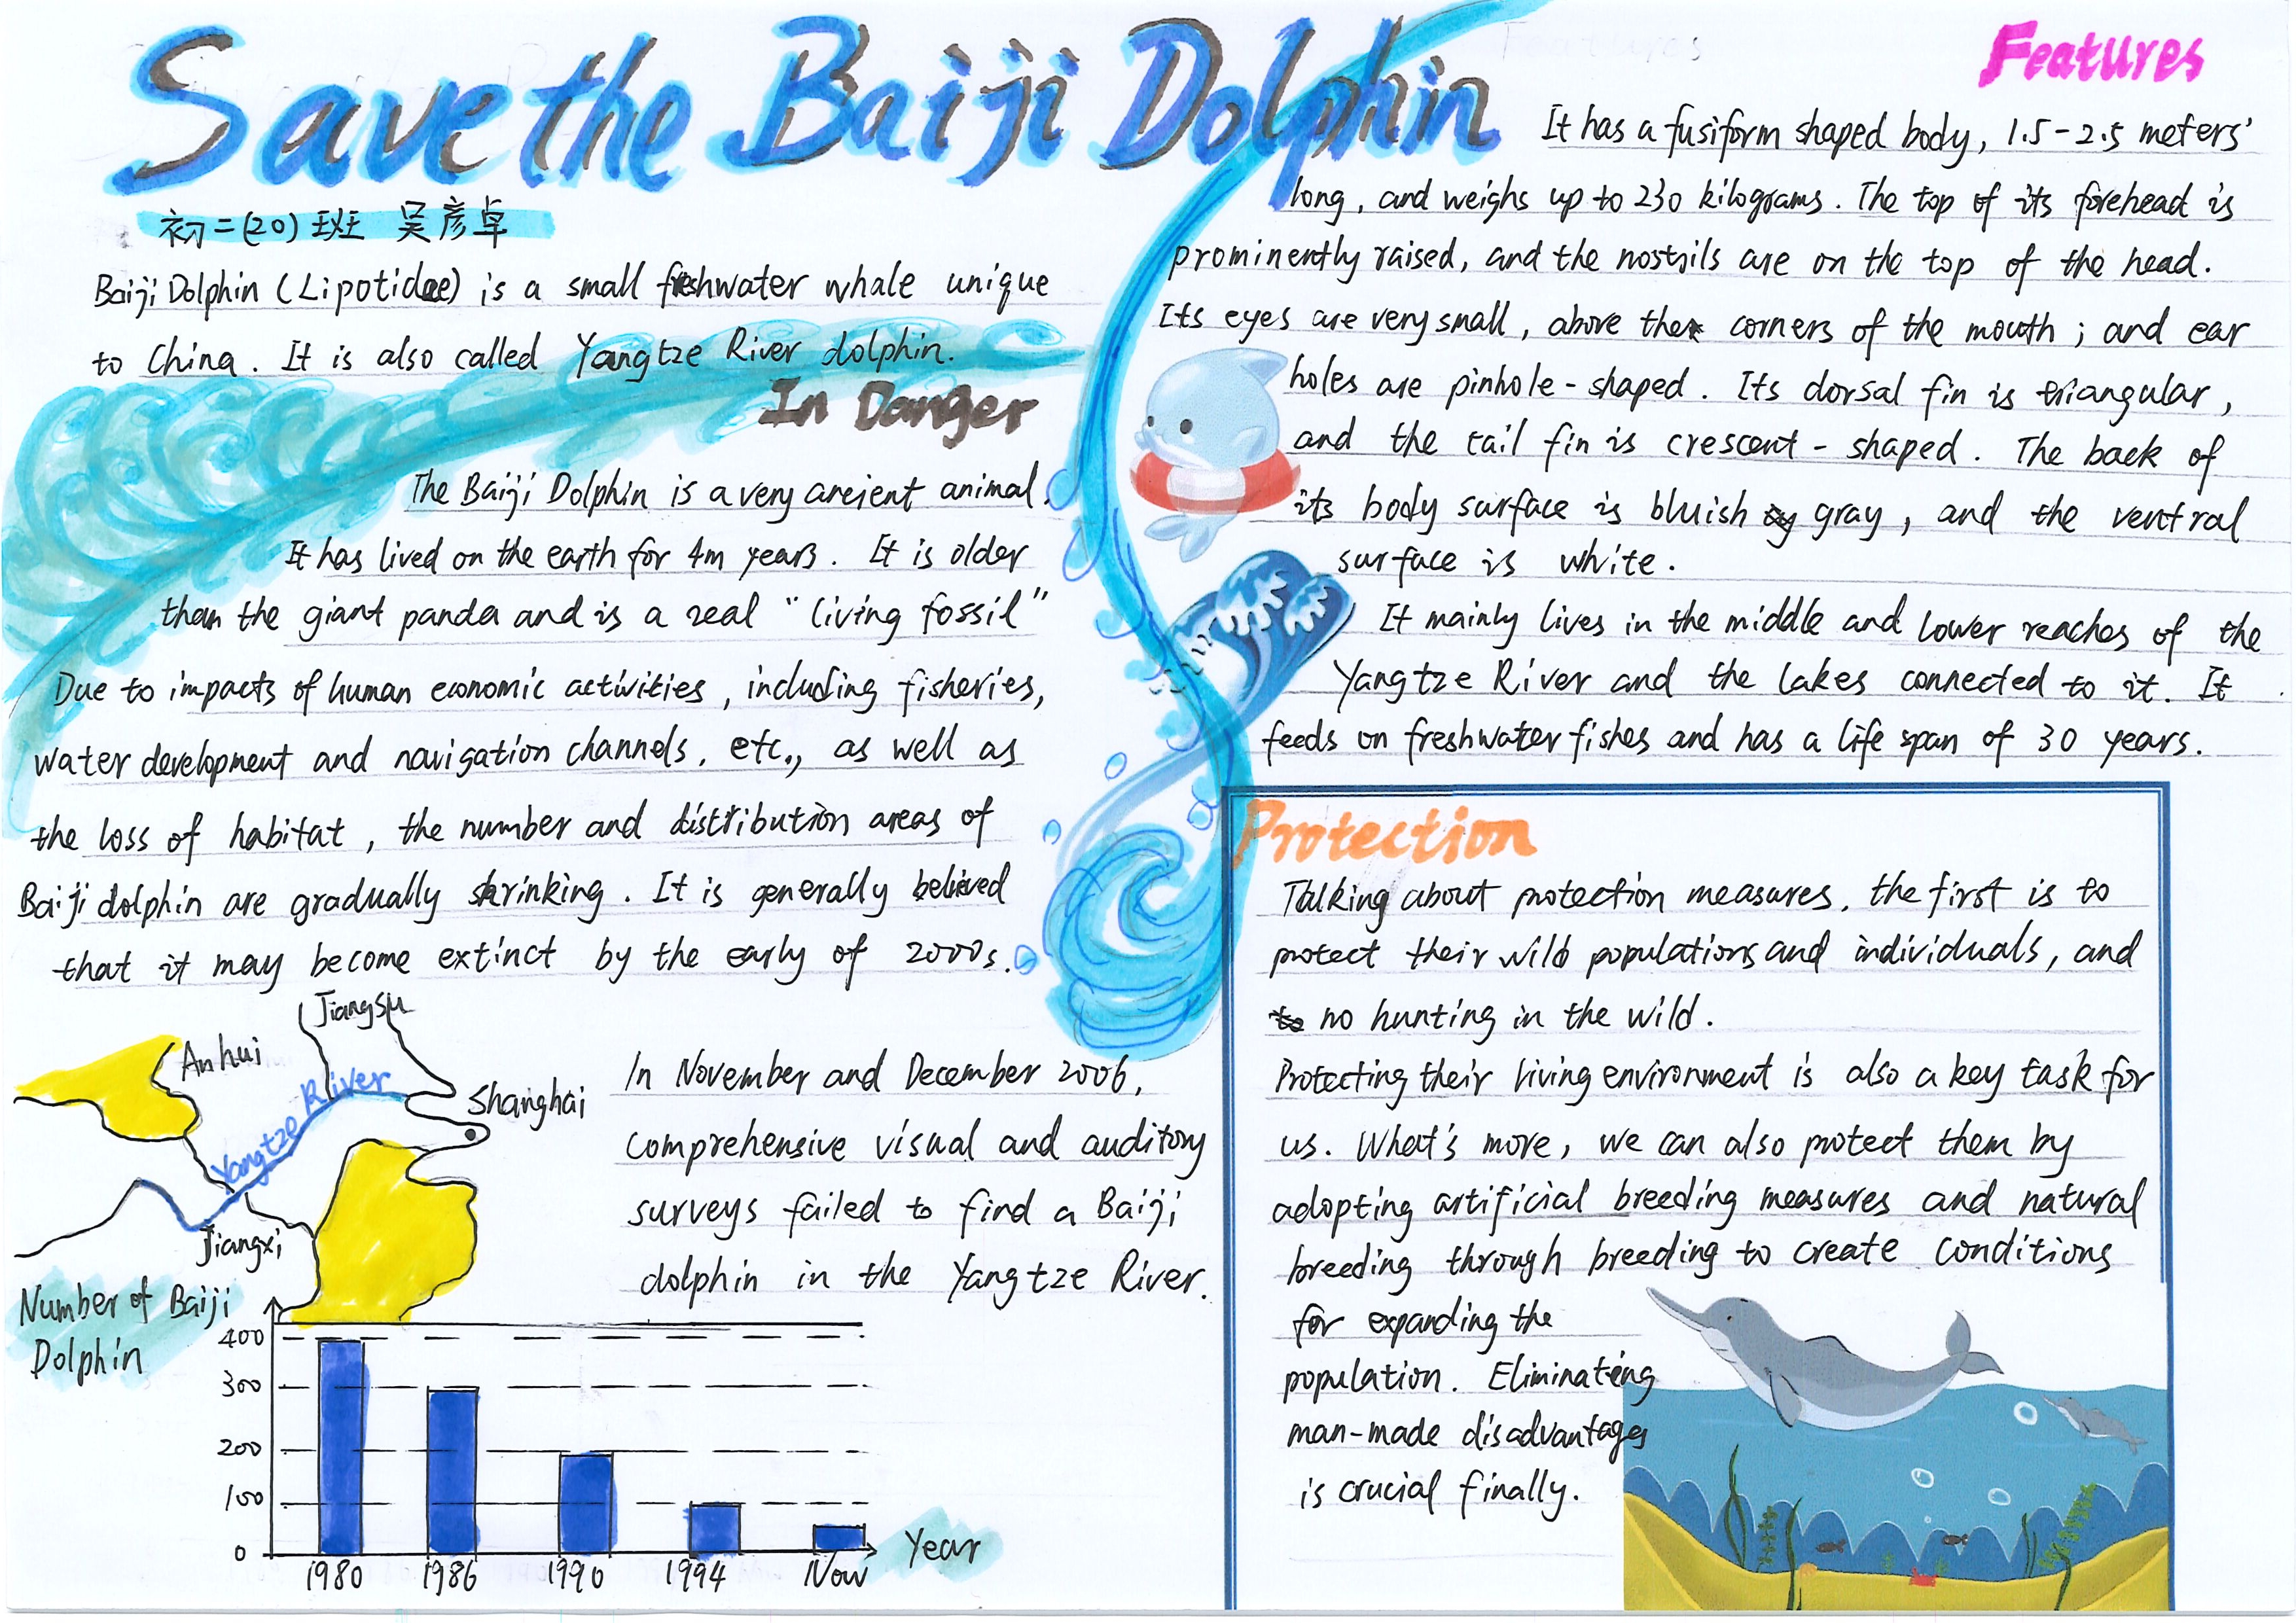 Save the Baiji Dolphin
初二(20)班 吴彦卓
Baiji Dolphin (Lipotidae) is a small freshwater whale unique
to China. It is also called Yangtze River dolphin.
In Danger
The Baiji Dolphin is a very ancient animal.
It has lived on the earth for 4m years. It is older
than the giant panda and is a real "living fossil"
Due to impacts of human economic activities, including fisheries,
water development and navigation channels, etc., as well as
the loss of habitat, the number and distribution areas of
Baiji dolphin are gradually shrinking. It is generally believed
that it may become extinct by the early of 2000s.
Jiangsu
Anhui
Yangtze River
Shanghai
Jiangxi
In November and December 2006,
comprehensive visual and auditory
surveys failed to find a Baiji
dolphin in the Yangtze River.
Number of Baiji
Dolphin
400
300
200
100
0
1980 1986 1990 1994 Now
Year
Features
It has a fusiform shaped body, 1.5-2.5 meters'
long, and weighs up to 230 kilograms. The top of its forehead is
prominently raised, and the nostrils are on the top of the head.
Its eyes are very small, above the corners of the mouth; and ear
holes are pinhole-shaped. Its dorsal fin is triangular,
and the tail fin is crescent-shaped. The back of
its body surface is bluish gray, and the ventral
surface is white.
It mainly lives in the middle and lower reaches of the
Yangtze River and the lakes connected to it. It
feeds on freshwater fishes and has a life span of 30 years.
Protection
Talking about protection measures, the first is to
protect their wild populations and individuals, and
no hunting in the wild.
Protecting their living environment is also a key task for
us. What's more, we can also protect them by
adopting artificial breeding measures and natural
breeding through breeding to create conditions
for expanding the
population. Eliminating
man-made disadvantages
is crucial finally.